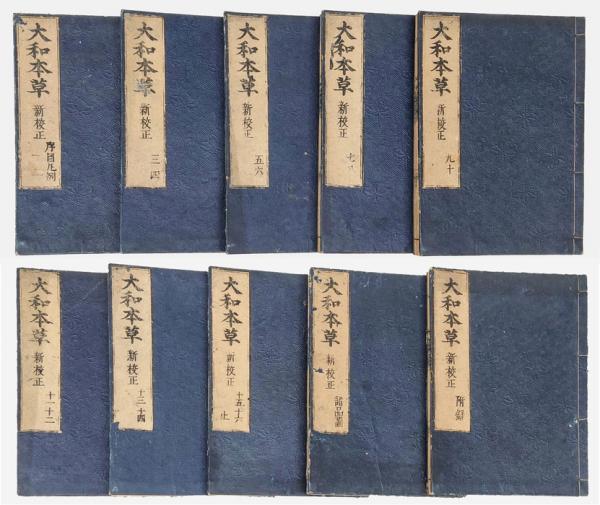 大和本草 新校正 序目凡例 一二
大和本草 新校正 三四
大和本草 新校正 五六
大和本草 新校正 七八
大和本草 新校正 九十
大和本草 新校正 十一十二
大和本草 新校正 十三十四
大和本草 新校正 十五十六止
大和本草 新校正 諸品圖
大和本草 新校正 附録